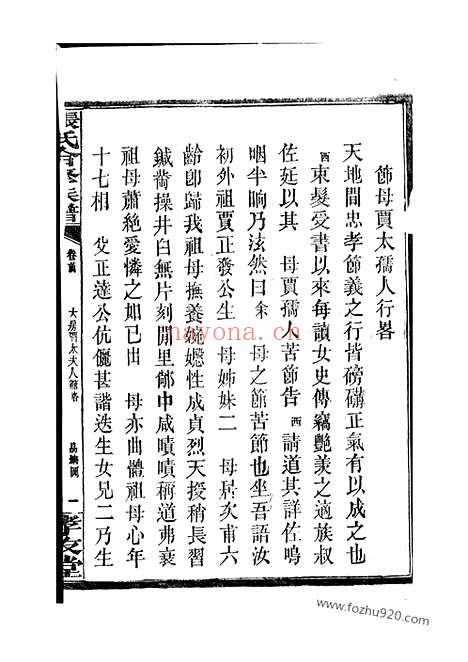 節母賈太孺人行畧
天地間忠孝節義之行皆磅礡正氣有以成之也
酉束髮受書以來每讀女史傳竊艷羨之適族叔
佐廷以其 母賈孺人苦節告 酉 請道其詳佐鳴
咽半晌乃泫然曰余 母之節苦節也坐吾語汝
初外祖賈正發公生 母姊妹二 母居次甫六
齡卽歸我祖母撫養婉嫕性成貞烈天授稍長習
鍼黹操井臼無片刻閒里鄰中咸嘖嘖稱道弗衰
祖母蕭絶愛憐之如已出 母亦曲體祖母心年
十七相 父正達公伉儷甚諧迭生女兄二乃生
張氏合修族譜
卷首
大房賈太夫人節畧
一
孝友堂
nayona.cn
www.fozhu920.com